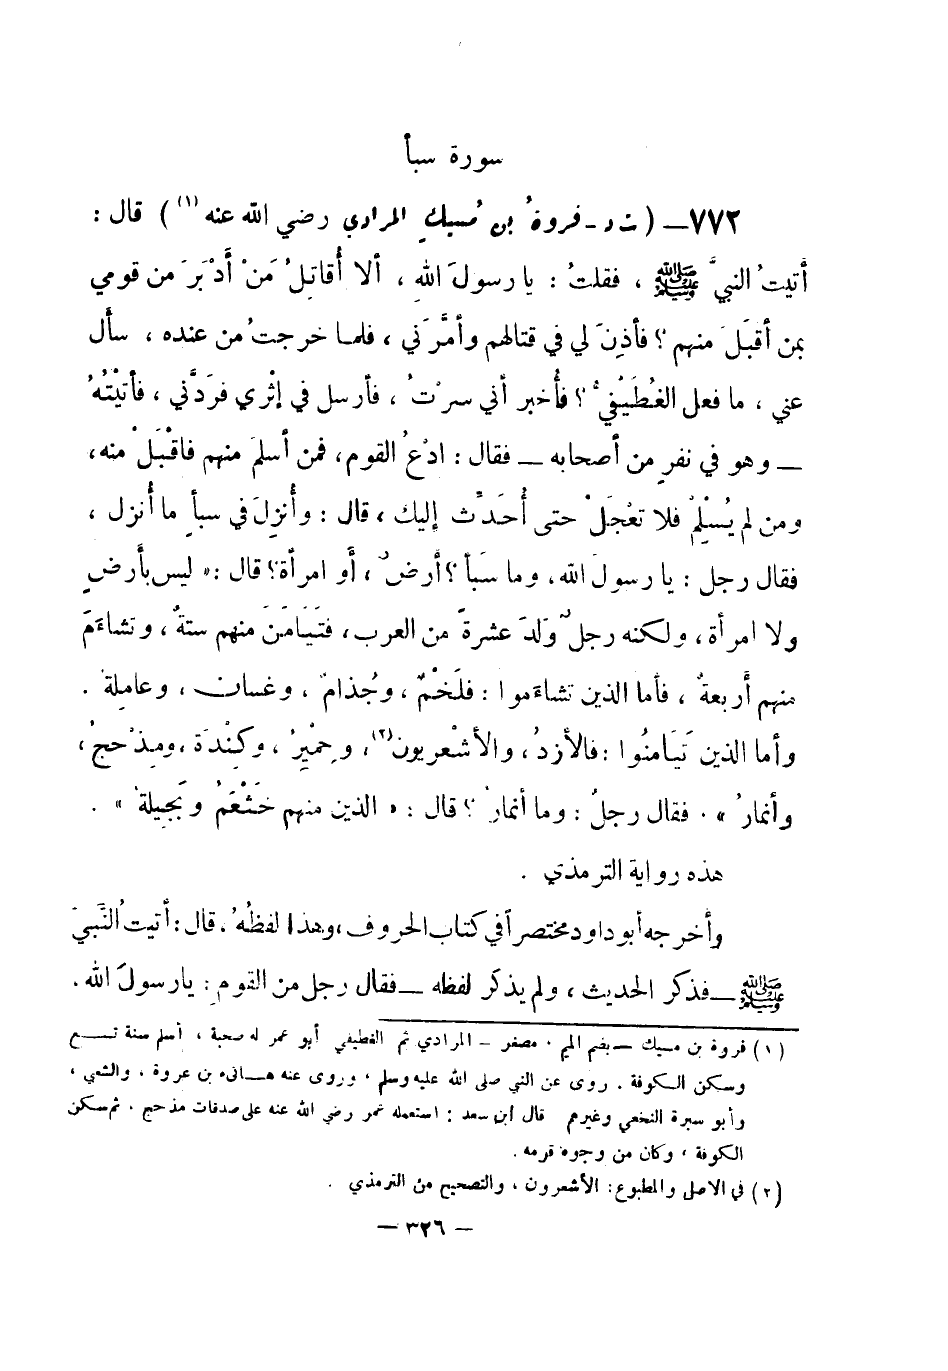 سورة سبأ
٧٧٢ – ( ت د – فروةُ بن مُسيكٍ المرادي رضي الله عنه (١) ) قال :
أتيتُ النبيَّ ﷺ ، فقلتُ : يا رسولَ اللهِ ، ألا أُقاتِلُ مَنْ أَدْبَرَ من قومي
بمن أقبَلَ منهم ؟ فأذِنَ لي في قتالهم وأمَّرَني ، فلما خرجتُ من عنده ، سأل
عني ، ما فعل الغُطَيْفيُّ ؟ فأُخبر أني سرْتُ ، فأرسل في إثْري فردَّني ، فأتيْتُهُ
– وهو في نفرٍ من أصحابه – فقال : ادْعُ القوم، فمن أسلمَ منهم فاقْبَلْ منه،
ومن لم يُسْلِمْ فلا تعْجَلْ حتى أُحَدِّث إليك ، قال : وأُنزِلَ في سبأٍ ما أُنزل ،
فقال رجل : يا رسولَ الله، وما سَبَأ ؟ أرضٌ ، أو امرأة؟ قال : « ليس بأرضٍ
ولا امرأة، ولكنه رجلٌ وَلَدَ عشرةً من العرب، فتَيَامَنَ منهم ستةٌ ، وتشاءَمَ
منهم أربعةٌ ، فأما الذين تشاءَموا : فلَخْمٌ ، وجُذامٌ ، وغسان ، وعاملةُ .
وأما الذين تَيَامنُوا : فالأزدُ ، والأشْعريون(٢)، وحِمْيرُ ، وكِنْدَة ، ومِذْحجُ ،
وأنمارُ » . فقال رجلٌ : وما أنمارُ ؟ قال : « الذين منهم خَثْعَمُ وبَجيلةُ » .
هذه رواية الترمذي .
وأخرجه أبو داود مختصراً في كتاب الحروف ، وهذا لفظُهُ . قال : أتيتُ النَّبيَّ
ﷺ – فذكر الحديث ، ولم يذكر لفظه – فقال رجل من القومِ : يا رسولَ الله.
(١) فروة بن مسيك – بضم الميم . مصغر – المرادي ثم الغطيفي أبو عمر له صحبة ، أسلم سنة تسع
وسكن الكوفة . روى عن النبي صلى الله عليه وسلم ، وروى عنه هانىء بن عروة ، والشعبي ،
وأبو سبرة النخعي وغيرهم قال ابن سعد : استعمله عمر رضي الله عنه على صدقات مذحج . ثم سكن
الكوفة ، وكان من وجوه قومه .
(٢) في الاصل والمطبوع: الأشعرون ، والتصحيح من الترمذي .
– ٣٢٦ –